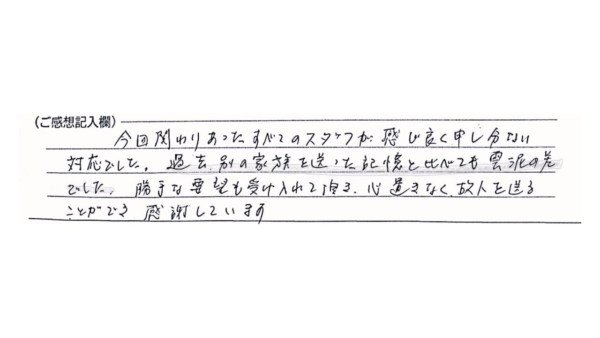 (ご感想記入欄)
今回関わりあったすべてのスタッフが感じ良く申し分ない
対応でした。過去、別の家族を送った記憶と比べても雲泥の差
でした。勝手な要望も受け入れて頂き、心置きなく故人を送る
ことができ感謝しています